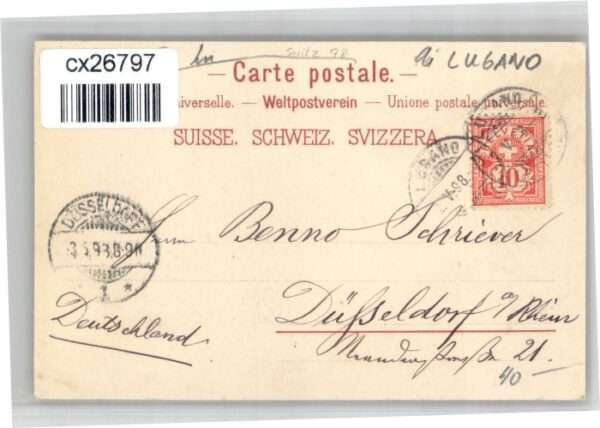 cx26797
Suitz 98
LUGANO
— Carte postale. —
iverselle. — Weltpostverein — Unione postale universale.
SUISSE. SCHWEIZ. SVIZZERA.
LUGANO
HELVETIA
10
DÜSSELDORF
1
Herrn Benno Schriever
Düsseldorf a/Rhein
Deutschland
21.
40-